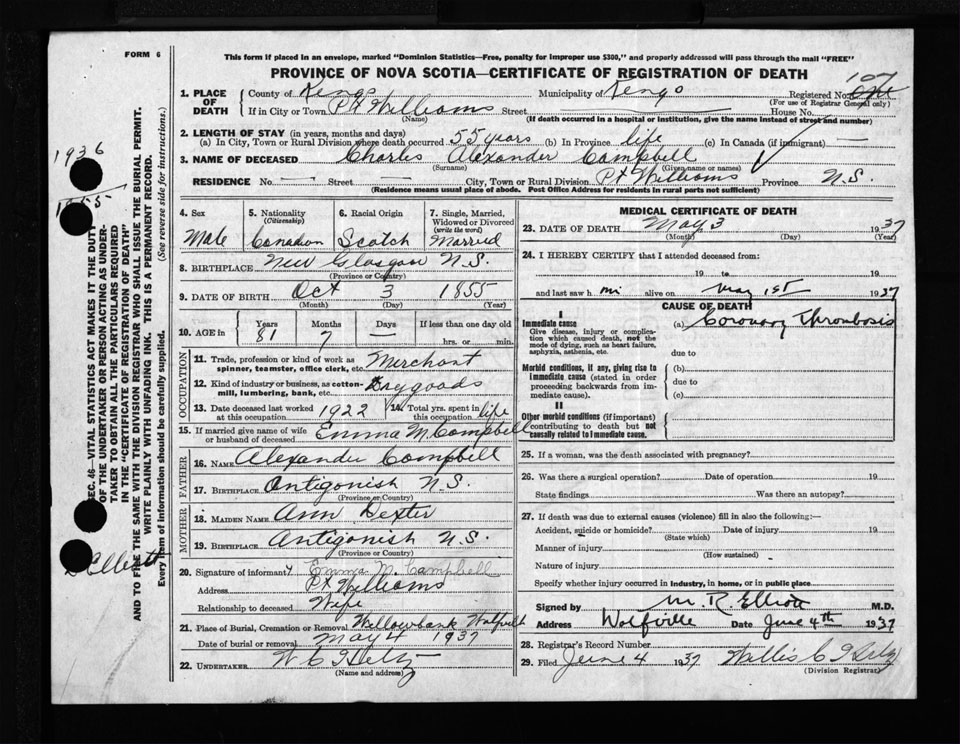 FORM 6
This form if placed in an envelope, marked "Dominion Statistics—Free, penalty for improper use $300," and properly addressed will pass through the mail "FREE"
PROVINCE OF NOVA SCOTIA—CERTIFICATE OF REGISTRATION OF DEATH
1936
1855
SEC. 46—VITAL STATISTICS ACT MAKES IT THE DUTY
OF THE UNDERTAKER OR PERSON ACTING AS UNDER-
TAKER TO OBTAIN ALL THE PARTICULARS REQUIRED
IN THE "CERTIFICATE OF REGISTRATION OF DEATH"
AND TO FILE THE SAME WITH THE DIVISION REGISTRAR WHO SHALL ISSUE THE BURIAL PERMIT.
WRITE PLAINLY WITH UNFADING INK. THIS IS A PERMANENT RECORD.
Every item of information should be carefully supplied. (See reverse side for instructions.)
1. PLACE OF DEATH County of Kings Municipality of Kings Registered No. 107
(For use of Registrar General only)
If in City or Town Pt Williams Street House No.
(Name) (If death occurred in a hospital or institution, give the name instead of street and number)
2. LENGTH OF STAY (in years, months and days)
(a) In City, Town or Rural Division where death occurred 55 years (b) In Province life (c) In Canada (if immigrant) —
3. NAME OF DECEASED Charles Alexander Campbell
(Surname) (Given name or names)
RESIDENCE No. — Street — City, Town or Rural Division Pt Williams Province N.S.
(Residence means usual place of abode. Post Office Address for residents in rural parts not sufficient)
4. Sex Male
5. Nationality (Citizenship) Canadian
6. Racial Origin Scotch
7. Single, Married, Widowed or Divorced (write the word) Married
8. BIRTHPLACE New Glasgow N.S.
(Province or Country)
9. DATE OF BIRTH Oct 3 1855
(Month) (Day) (Year)
10. AGE in Years 81 Months 7 Days If less than one day old hrs. or min.
OCCUPATION
11. Trade, profession or kind of work as spinner, teamster, office clerk, etc. Merchant
12. Kind of industry or business, as cotton-mill, lumbering, bank, etc. Drygoods
13. Date deceased last worked at this occupation 1922 14. Total yrs. spent in this occupation life
15. If married give name of wife or husband of deceased Emma M. Campbell
FATHER
16. NAME Alexander Campbell
17. BIRTHPLACE Antigonish N.S.
(Province or Country)
MOTHER
18. MAIDEN NAME Ann Dexter
19. BIRTHPLACE Antigonish N.S.
(Province or Country)
20. Signature of informant Emma M. Campbell
Address Pt Williams
Relationship to deceased Wife
21. Place of Burial, Cremation or Removal Willowbank Wolfville
Date of burial or removal May 4 1937
22. UNDERTAKER
(Name and address)
MEDICAL CERTIFICATE OF DEATH
23. DATE OF DEATH May 3 1937
(Month) (Day) (Year)
24. I HEREBY CERTIFY that I attended deceased from:
19 to 19
and last saw him alive on May 1st 1937
CAUSE OF DEATH
I
Immediate cause (a) Coronary Thrombosis
Give disease, injury or complication which caused death, not the mode of dying, such as heart failure, asphyxia, asthenia, etc.
due to
Morbid conditions, if any, giving rise to immediate cause (stated in order proceeding backwards from immediate cause). (b)
due to
(c)
II
Other morbid conditions (if important) contributing to death but not causally related to immediate cause.
25. If a woman, was the death associated with pregnancy?
26. Was there a surgical operation? Date of operation 19
State findings Was there an autopsy?
27. If death was due to external causes (violence) fill in also the following:—
Accident, suicide or homicide? Date of injury 19
(State which)
Manner of injury
(How sustained)
Nature of injury
Specify whether injury occurred in industry, in home, or in public place
Signed by M. R. Elliott M.D.
Address Wolfville Date June 4th 1937
28. Registrar's Record Number
29. Filed June 4 1937
(Division Registrar)